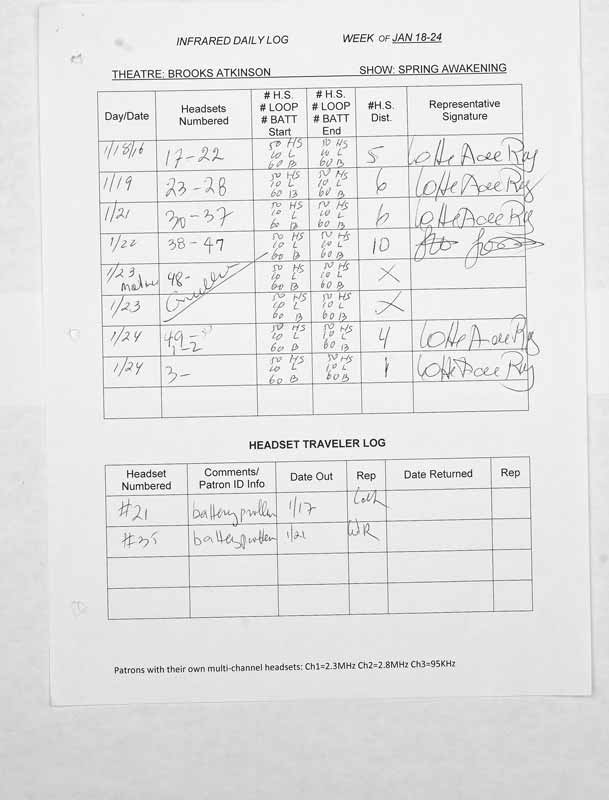 INFRARED DAILY LOG WEEK OF JAN 18-24
THEATRE: BROOKS ATKINSON SHOW: SPRING AWAKENING
Day/Date Headsets Numbered # H.S. # LOOP # BATT Start # H.S. # LOOP # BATT End #H.S. Dist. Representative Signature
1/18/16 17-22 50 HS 10 L 60 B 50 HS 10 L 60 B 5
1/19 23-28 50 HS 10 L 60 B 50 HS 10 L 60 B 6
1/21 30-37 50 HS 10 L 60 B 50 HS 10 L 60 B 6
1/22 38-47 50 HS 10 L 60 B 50 HS 10 L 60 B 10
1/23 48- 50 HS 10 L 60 B 50 HS 10 L 60 B X
1/23 50 HS 10 L 60 B 50 HS 10 L 60 B X
1/24 49- 1-2 50 HS 10 L 60 B 50 HS 10 L 60 B 4
1/24 3- 50 HS 10 L 60 B 50 HS 10 L 60 B 1
HEADSET TRAVELER LOG
Headset Numbered Comments/ Patron ID Info Date Out Rep Date Returned Rep
#21 battery problem 1/17
#35 battery problem 1/21 WR
Patrons with their own multi-channel headsets: Ch1=2.3MHz Ch2=2.8MHz Ch3=95KHz